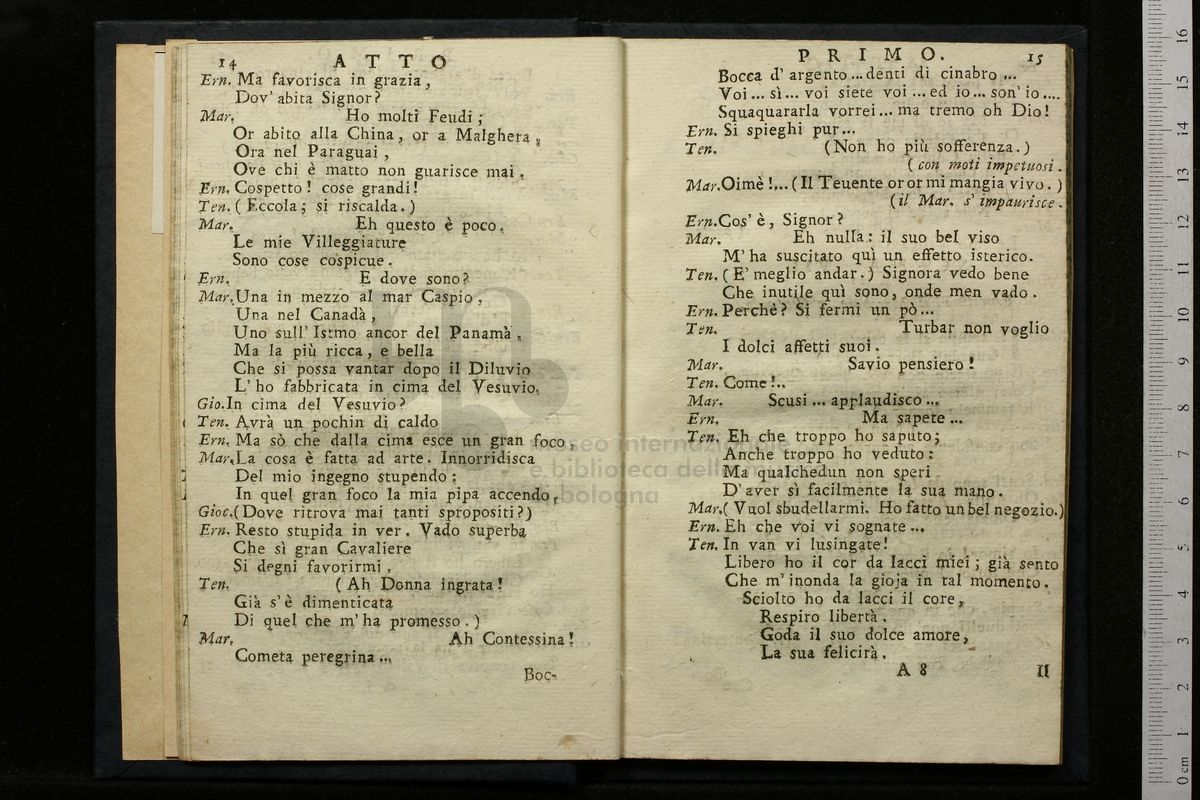 14 ATTO
Ern. Ma favorisca in grazia,
Dov' abita Signor?
Mar. Ho molti Feudi;
Or abito alla China, or a Malghera,
Ora nel Paraguai,
Ove chi è matto non guarisce mai.
Ern. Cospetto! cose grandi!
Ten. (Eccola; si riscalda.)
Mar. Eh questo è poco.
Le mie Villeggiature
Sono cose cospicue.
Ern. E dove sono?
Mar. Una in mezzo al mar Caspio,
Una nel Canadà,
Uno sull' Istmo ancor del Panamà.
Ma la più ricca, e bella
Che si possa vantar dopo il Diluvio
L' ho fabbricata in cima del Vesuvio.
Gio. In cima del Vesuvio?
Ten. Avrà un pochin di caldo
Ern. Ma sò che dalla cima esce un gran foco.
Mar. La cosa è fatta ad arte. Innorridisca
Del mio ingegno stupendo:
In quel gran foco la mia pipa accendo.
Gioc. (Dove ritrova mai tanti spropositi?)
Ern. Resto stupida in ver. Vado superba
Che sì gran Cavaliere
Si degni favorirmi.
Ten. (Ah Donna ingrata!
Già s'è dimenticata
Di quel che m'ha promesso.)
Mar. Ah Contessina!
Cometa peregrina...
Boc-
PRIMO. 15
Bocca d' argento... denti di cinabro...
Voi... sì... voi siete voi... ed io... son' io....
Squaquararla vorrei... ma tremo oh Dio!
Ern. Si spieghi pur...
Ten. (Non ho più sofferenza.)
(con moti impetuosi.
Mar. Oimè!... (Il Teuente or or mi mangia vivo.)
(il Mar. s' impaurisce.
Ern. Cos' è, Signor?
Mar. Eh nulla: il suo bel viso
M' ha suscitato quì un effetto isterico.
Ten. (E' meglio andar.) Signora vedo bene
Che inutile quì sono, onde men vado.
Ern. Perchè? Si fermi un pò...
Ten. Turbar non voglio
I dolci affetti suoi.
Mar. Savio pensiero!
Ten. Come!..
Mar. Scusi... applaudisco...
Ern. Ma sapete...
Ten. Eh che troppo ho saputo;
Anche troppo ho veduto:
Ma qualchedun non speri
D'aver sì facilmente la sua mano.
Mar. (Vuol sbudellarmi. Ho fatto un bel negozio.)
Ern. Eh che voi vi sognate...
Ten. In van vi lusingate!
Libero ho il cor da lacci miei; già sento
Che m'inonda la gioja in tal momento.
Sciolto ho da lacci il core,
Respiro libertà.
Goda il suo dolce amore,
La sua felicirà.
A 8 Il
museo internazionale
e biblioteca della
di bologna
cm
0 1 2 3 4 5 6 7 8 9 10 11 12 13 14 15 16